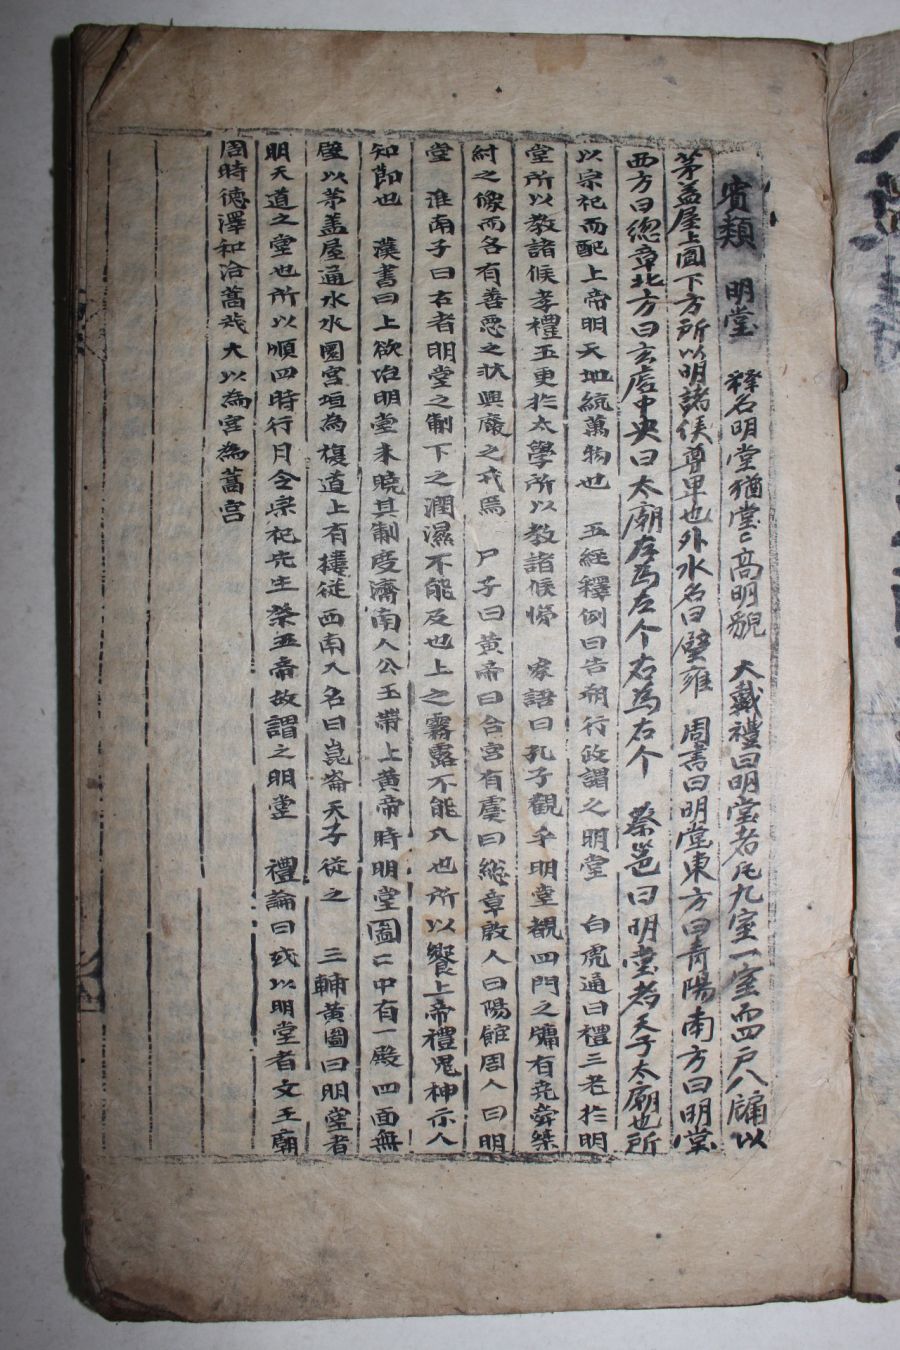 賓類 明堂 釋名明堂猶堂〻高明貌 大戴禮曰明堂者凡九室一室而四戶八牖以
茅盖屋上圓下方所以明諸侯尊卑也外水名曰璧雍 周書曰明堂東方曰青陽南方曰明堂
西方曰緫章北方曰玄庿中央曰太廟左為左个右為右个 蔡邕曰明堂者天子太廟也所
以宗祀而配上帝明天地統萬物也 五經釋例曰告朔行政謂之明堂 白虎通曰禮三老扵明
堂所以教諸侯孝禮五更扵太學所以教諸侯悌 家語曰孔子觀乎明堂觀四門之牗有堯舜桀
紂之像而各有善惡之狀興廢之戒焉 尸子曰黃帝曰合宮有虞曰総章殷人曰陽館周人曰明
堂 淮南子曰古者明堂之制下之潤濕不能及也上之霧露不能入也所以饗上帝禮鬼神示人
知節也 漢書曰上欲治明堂未曉其制度濟南人公玉帶上黃帝時明堂圖〻中有一殿四面無
壁以茅盖屋通水水圜宮垣為複道上有樓從西南入名曰崑崙天子從之 三輔黃圖曰明堂者
明天道之堂也所以順四時行月令宗祀先生祭五帝故謂之明堂 禮論曰或以明堂者文王廟
周時德澤和洽蒿茂大以為宮為蒿宮